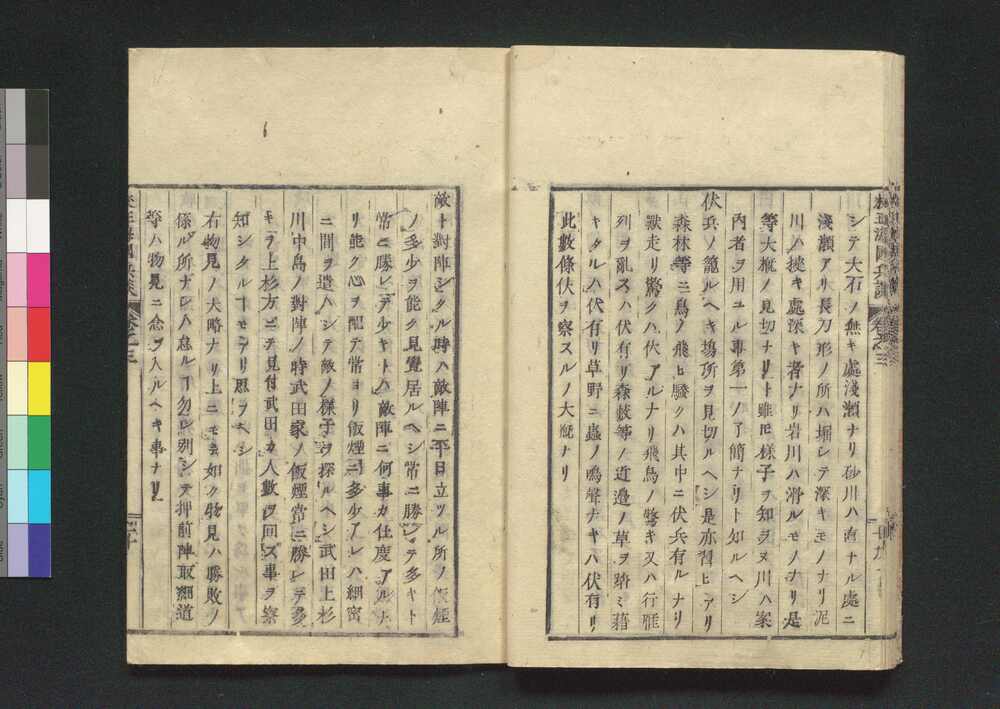 シテ大石ノ無キ處淺瀬ナリ砂川ハ直ナル處ニ
淺瀬アリ長刀形ノ所ハ堀レテ深キモノナリ泥
川ハ挾キ處深キ者ナリ岩川ハ滑ルモノナリ是
等大概ノ見切ナリト雖𪜈樣子ヲ知ラヌ川ハ案
內者ヲ用ユル事第一ノ了簡ナリト知ルヘシ
伏兵ノ籠ルヘキ塲所ヲ見切ルヘシ是亦習ヒアリ
森林等ニ鳥ノ飛ヒ騷クハ其中ニ伏兵有ルナリ
獸走リ驚クハ伏アルナリ飛鳥ノ驚キ又ハ行雁
列ヲ亂スハ伏有リ森藪等ノ近邉ノ草ヲ踏ミ藉
キタルハ伏有リ草野ニ蟲ノ鳴聲ナキハ伏有リ
此數條伏ヲ察スルノ大概ナリ
敵ト對陣シタル時ハ敵陣ニ平日立ツル所ノ飯煙
ノ多少ヲ能ク見覺居ルヘシ常ニ勝レテ多キト
常ニ勝レテ少キトハ敵陣ニ何事カ仕度アルナ
リ能ク心ヲ配テ常ヨリ飯煙ニ多少アレハ細密
ニ間ヲ遣ハシテ敵ノ樣子ヲ探ルヘシ武田上杉
川中島ノ對陣ノ時武田家ノ飯煙常ニ勝レテ多
キヲ上杉方ニテ見付武田カ人數ヲ回ス事ヲ察
知シタルヿモアリ思フヘシ
右物見ノ大略ナリ上ニモ云如ク物見ハ勝敗ノ
係ル所ナレハ怠ルヿ勿レ別シテ押前陣取細道
等ハ物見ニ念ヲ入ルヘキ事ナリ
卷之三
二十